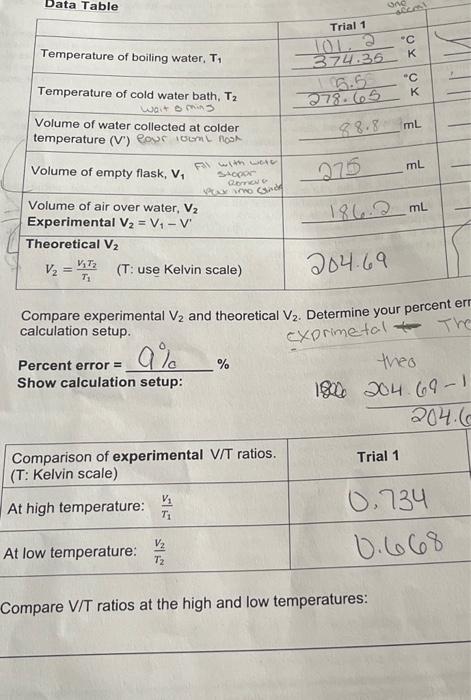 Data Table
one
Trial 1
Temperature of boiling water, T₁ 101.2 °C
374.35 K
Temperature of cold water bath, T₂ 5.5 °C
278.65 K
wait 5 mins
Volume of water collected at colder
temperature (V') Pour 100mL 88.8 mL
Volume of empty flask, V₁ 275 mL
Fill with water
stopper
Remove
Pour into
Volume of air over water, V₂
Experimental V₂ = V₁ – V' 186.2 mL
Theoretical V₂
V₂ = V₁T₂/T₁ (T: use Kelvin scale) 204.69
Compare experimental V₂ and theoretical V₂. Determine your percent err
calculation setup.
exprimetal The
Percent error = 9% %
theo
Show calculation setup:
204.69-1
204.6
Comparison of experimental V/T ratios. Trial 1
(T: Kelvin scale)
At high temperature: V₁/T₁ 0.734
At low temperature: V₂/T₂ 0.668
Compare V/T ratios at the high and low temperatures: